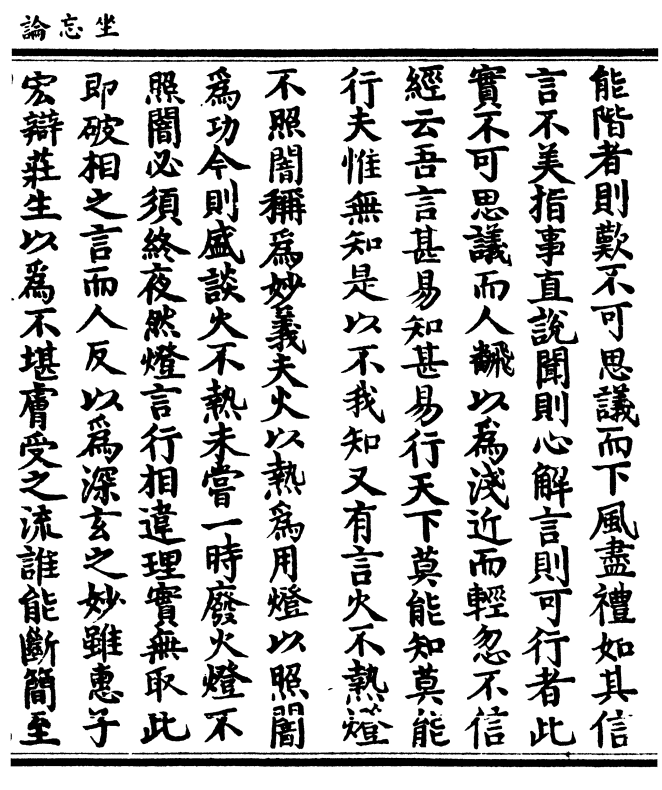 坐忘論
能階者則歎不可思議而下風盡禮如其信
言不美指事直說聞則心解言則可行者此
實不可思議而人飜以爲淺近而輕忽不信
經云吾言甚易知甚易行天下莫能知莫能
行夫惟無知是以不我知又有言火不熱燈
不照闇稱爲妙義夫火以熱爲用燈以照闇
爲功今則盛談火不熱未嘗一時廢火燈不
照闇必須終夜然燈言行相違理實無取此
即破相之言而人反以爲深玄之妙雖惠子
宏辯莊生以爲不堪膚受之流誰能斷簡至